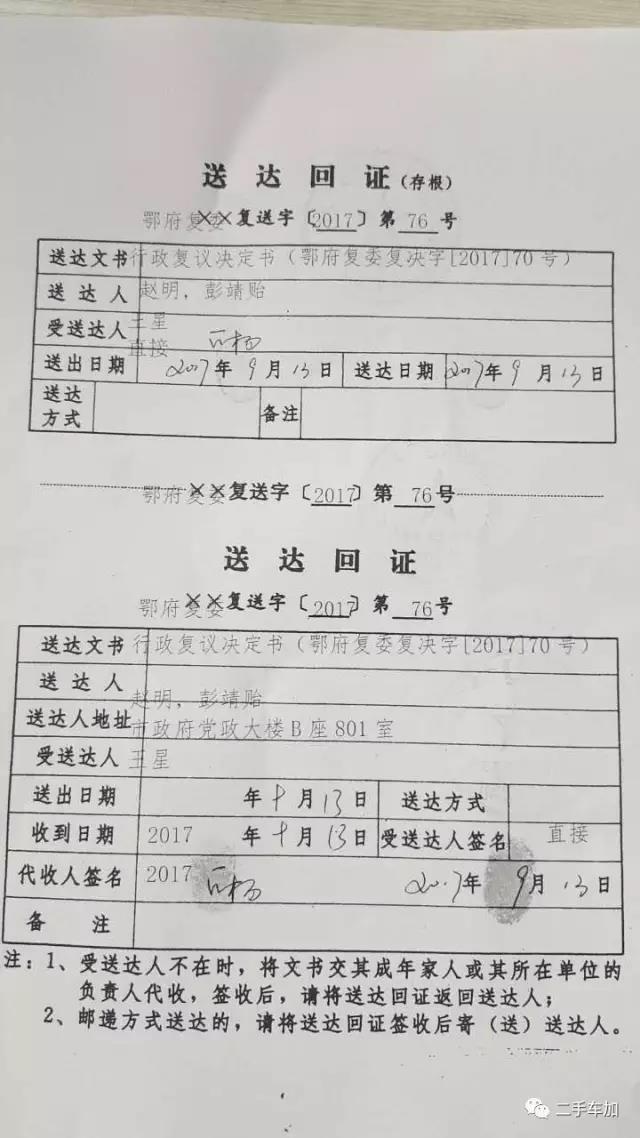 送达回证(存根)
鄂府复委××复送字〔2017〕第 76 号
送达文书 行政复议决定书(鄂府复委复决字[2017]70号)
送达人 赵明,彭靖贻
受送达人 王星
直接
送出日期 2017年9月13日 送达日期 2017年9月13日
送达方式 备注
鄂府复委××复送字〔2017〕第 76号
送达回证
鄂府复委××复送字〔2017〕第 76号
送达文书 行政复议决定书(鄂府复委复决字[2017]70号)
送达人 赵明,彭靖贻
送达人地址 市政府党政大楼B座801室
受送达人 王星
送出日期 年 月13日 送达方式
收到日期 2017 年 月13日 受送达人签名 直接
代收人签名 2017 2017年9月13日
备注
注:1、受送达人不在时,将文书交其成年家人或其所在单位的
负责人代收,签收后,请将送达回证返回送达人;
2、邮递方式送达的,请将送达回证签收后寄(送)送达人。
二手车加